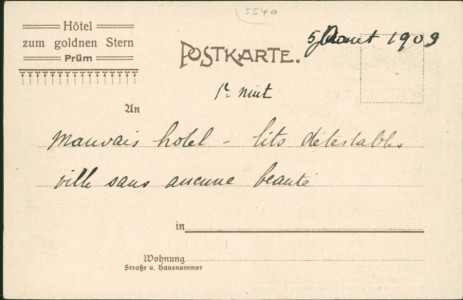 5570
Hôtel
zum goldnen Stern
Prüm
POSTKARTE.
5 Aout 1909
1re nuit
An
Mauvais hotel - lits détestables
ville sans aucune beauté
in
Wohnung
Straße u. Hausnummer